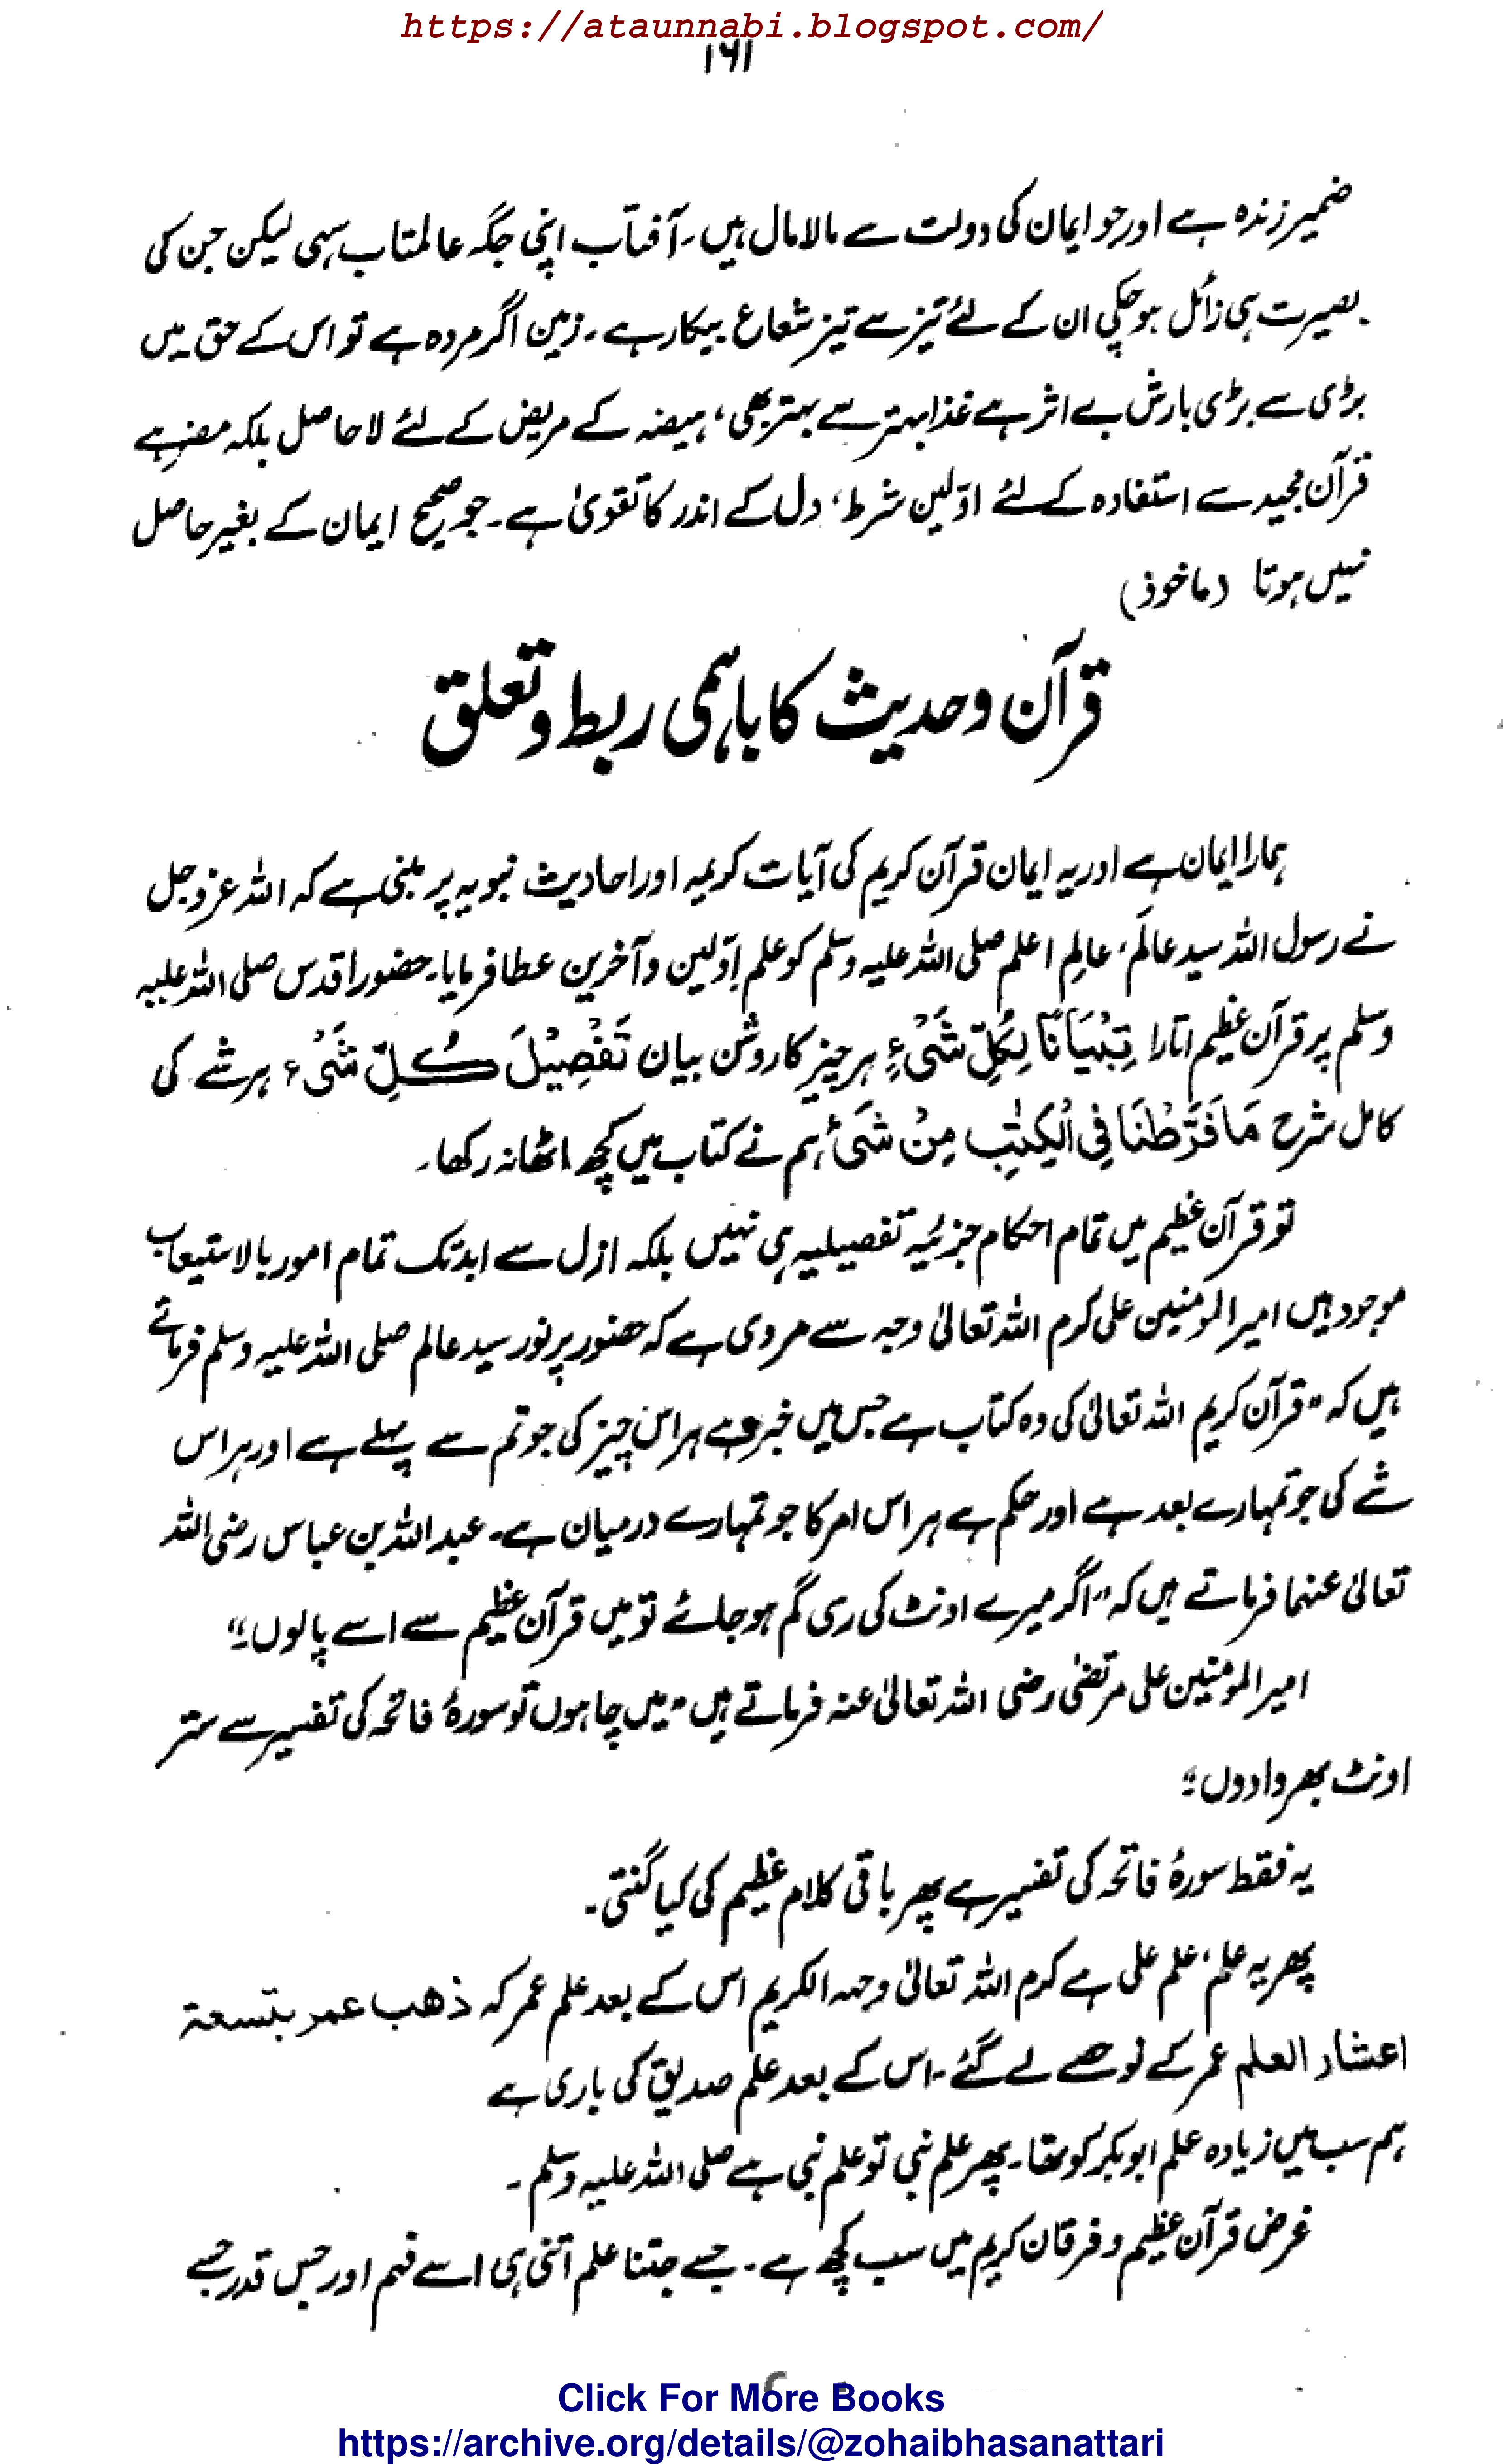 https://ataunnabi.blogspot.com/
۱۶۱
ضمیر زندہ ہے اور جو ایمان کی دولت سے مالا مال ہیں۔ آفتاب اپنی جگہ عالمتاب سہی لیکن جن کی
بصیرت ہی زائل ہو چکی ان کے لئے تیز سے تیز شعاع بیکار ہے۔ زمین اگر مردہ ہے تو اس کے حق میں
بڑی سے بڑی بارش بے اثر ہے غذا بہتر سے بہتر بھی، ہیضہ کے مریض کے لئے لا حاصل بلکہ مضر ہے
قرآن مجید سے استفادہ کے لئے اوّلین شرط، دل کے اندر کا تقویٰ ہے۔ جو صحیح ایمان کے بغیر حاصل
نہیں ہوتا (ماخوذ)
قرآن و حدیث کا باہمی ربط و تعلق
ہمارا ایمان ہے اور یہ ایمان قرآن کریم کی آیات کریمہ اور احادیث نبویہ پر مبنی ہے کہ اللہ عزوجل
نے رسول اللہ سید عالَم، عالِم اعلم صلی اللہ علیہ وسلم کو علم اوّلین و آخرین عطا فرمایا۔ حضور اقدس صلی اللہ علیہ
وسلم پر قرآن عظیم اتارا تِبْیَانًا لِکُلِّ شَیْءٍ ہر چیز کا روشن بیان تَفْصِیْلَ کُلِّ شَیْء ہر شے کی
کامل شرح مَا فَرَّطْنَا فِی الْکِتٰبِ مِنْ شَیْءٍ ہم نے کتاب میں کچھ اٹھا نہ رکھا۔
تو قرآن عظیم میں تمام احکام جزئیہ تفصیلیہ ہی نہیں بلکہ ازل سے ابد تک تمام امور بالاستیعاب
موجود ہیں امیر المومنین علی کرم اللہ تعالیٰ وجہہ سے مروی ہے کہ حضور پرنور سید عالم صلی اللہ علیہ وسلم فرماتے
ہیں کہ "قرآن کریم اللہ تعالیٰ کی وہ کتاب ہے جس میں خبر ہے ہر اس چیز کی جو تم سے پہلے ہے اور ہر اس
شے کی جو تمہارے بعد ہے اور حکم ہے ہر اس امر کا جو تمہارے درمیان ہے۔ عبد اللہ بن عباس رضی اللہ
تعالیٰ عنہما فرماتے ہیں کہ "اگر میرے اونٹ کی رسی گم ہو جائے تو میں قرآن عظیم سے اسے پالوں۔"
امیر المومنین علی مرتضیٰ رضی اللہ تعالیٰ عنہ فرماتے ہیں "میں چاہوں تو سورۂ فاتحہ کی تفسیر سے ستر
اونٹ بھروا دوں۔"
یہ فقط سورۂ فاتحہ کی تفسیر ہے پھر باقی کلام عظیم کی کیا گنتی۔
پھر یہ علم، علم علی ہے کرم اللہ تعالیٰ وجہہ الکریم اس کے بعد علم عمر کہ ذھب عمر بتسعة
اعشار العلم عمر کے نو حصے لے گئے۔ اس کے بعد علم صدیق کی باری ہے
ہم سب میں زیادہ علم ابوبکر کو تھا۔ پھر علم نبی تو علم نبی ہے صلی اللہ علیہ وسلم۔
غرض قرآن عظیم و فرقان کریم میں سب کچھ ہے۔ جسے جتنا علم اتنی ہی اسے فہم اور جس قدر جسے
Click For More Books
https://archive.org/details/@zohaibhasanattari